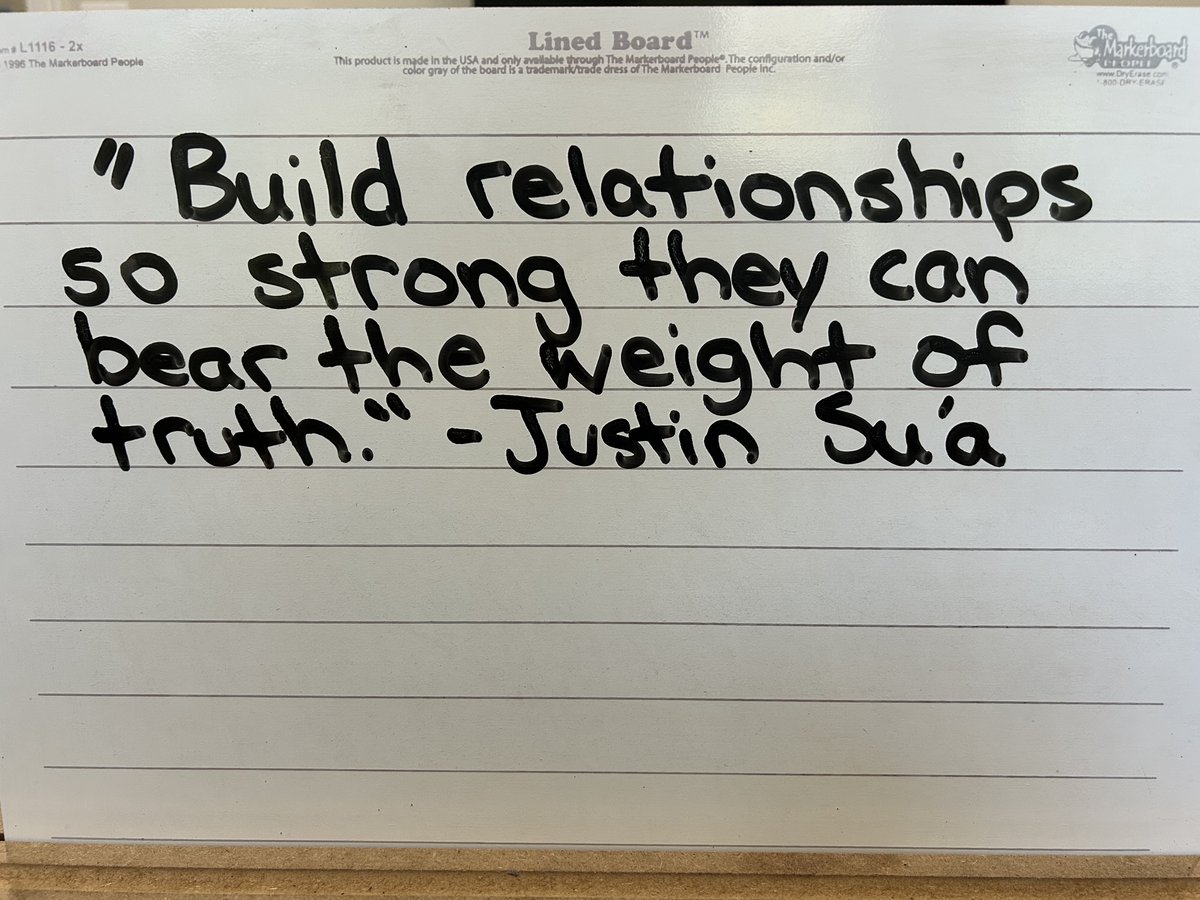 # L1116 - 2x
1996 The Markerboard People
Lined Board™
This product is made in the USA and only available through The Markerboard People®. The configuration and/or
color gray of the board is a trademark/trade dress of The Markerboard People Inc.
The
Markerboard
PEOPLE
www.DryErase.com
1-800-DRY-ERASE
"Build relationships
so strong they can
bear the weight of
truth." - Justin Su'a